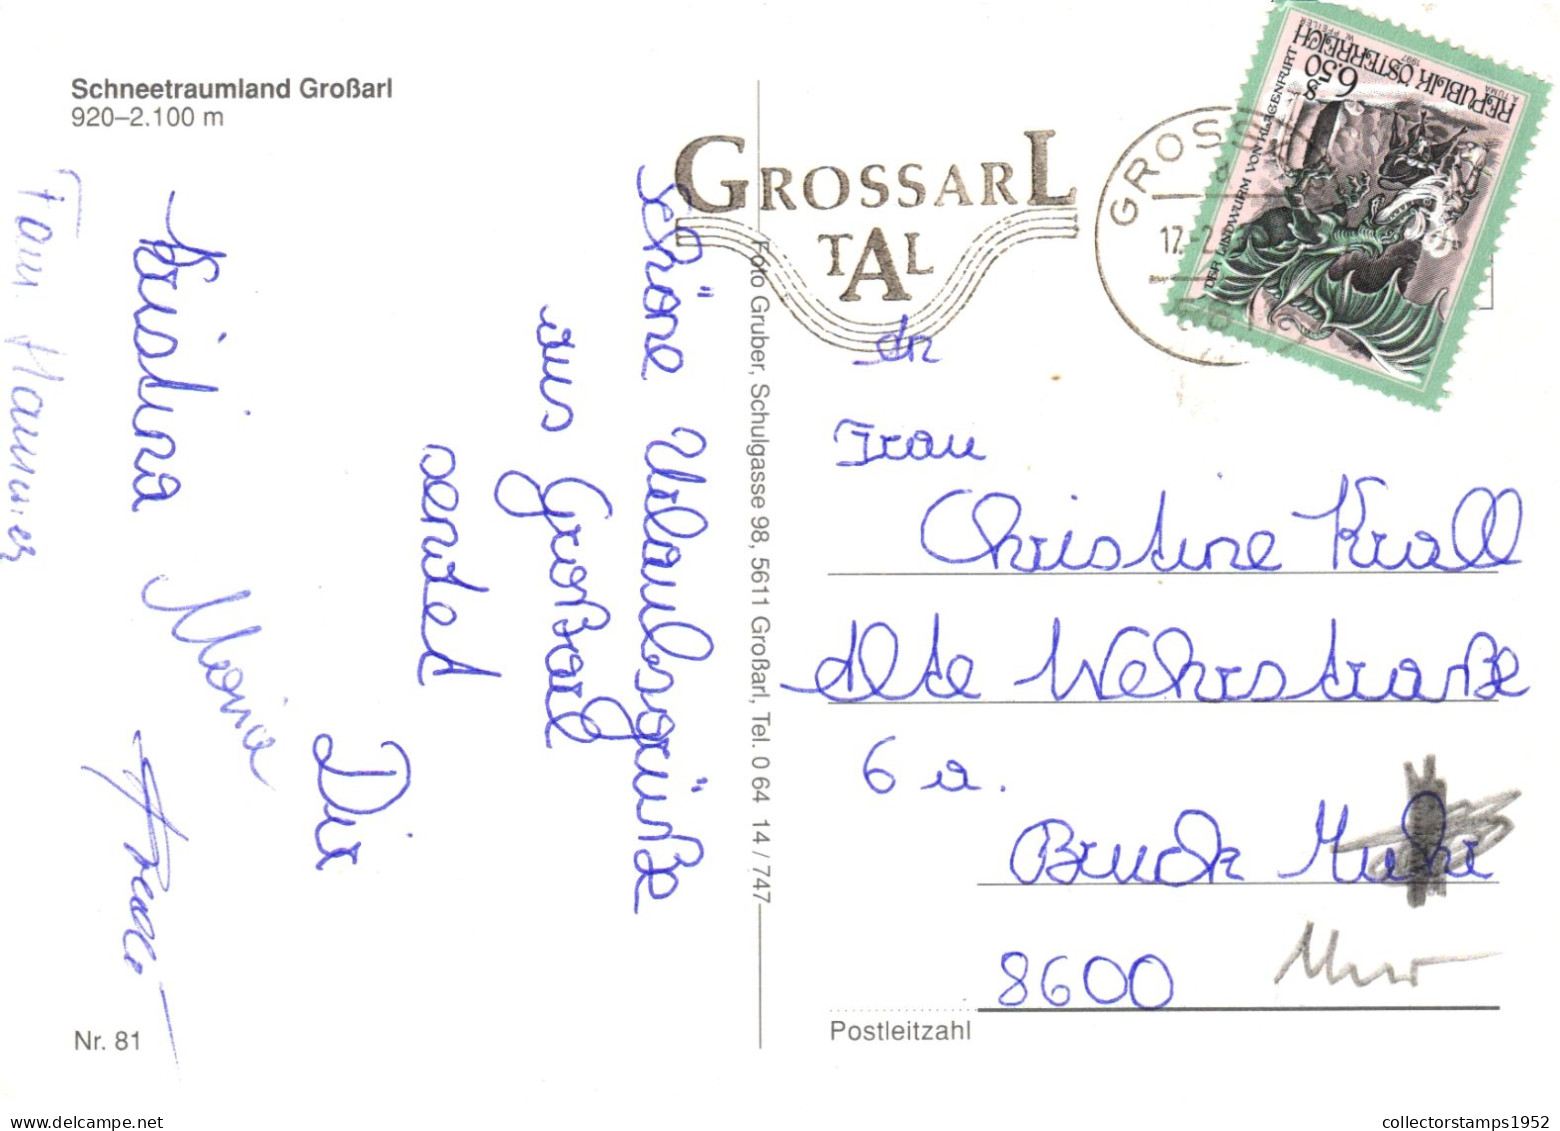 Schneetraumland Großarl
920–2.100 m
Schöne Urlaubsgrüße
aus Großarl
sendet
Dir
Kristina
Maria
Fam.
Nr. 81
Foto Gruber, Schulgasse 98, 5611 Großarl, Tel. 0 64 14 / 747
GROSSARL
TAL
GROSS
17.-2.
REPUBLIK ÖSTERREICH
S 6.50
DER LINDWURM VON KLAGENFURT
W. PFEILER
1997
A. TUMA
An
Frau
Christine Krall
Alte Wehrstraße
6 a.
Bruck
Mur
8600
Postleitzahl
collectorstamps1952